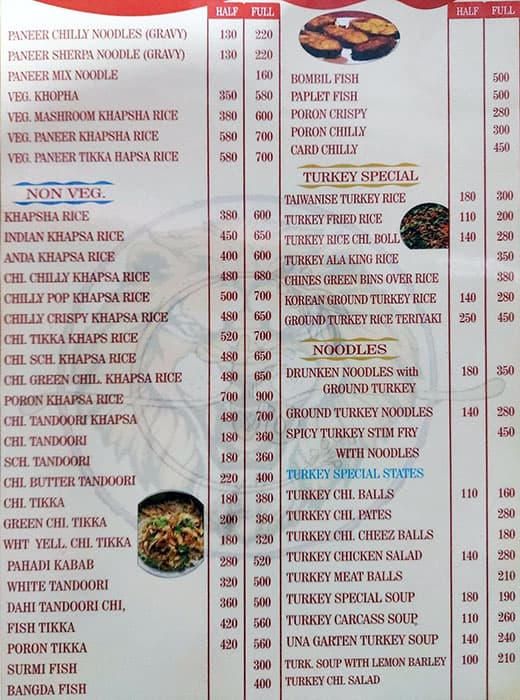 HALF FULL
PANEER CHILLY NOODLES (GRAVY) 130 220
PANEER SHERPA NOODLE (GRAVY) 130 220
PANEER MIX NOODLE 160
VEG. KHOPHA 350 580
VEG. MASHROOM KHAPSHA RICE 380 600
VEG. PANEER KHAPSHA RICE 580 700
VEG. PANEER TIKKA HAPSA RICE 580 700
NON VEG.
KHAPSHA RICE 380 600
INDIAN KHAPSA RICE 450 650
ANDA KHAPSA RICE 400 600
CHI. CHILLY KHAPSA RICE 480 680
CHILLY POP KHAPSA RICE 500 700
CHILLY CRISPY KHAPSA RICE 480 650
CHI. TIKKA KHAPS RICE 520 700
CHI. SCH. KHAPSA RICE 480 650
CHI. GREEN CHIL. KHAPSA RICE 480 650
PORON KHAPSA RICE 700 900
CHI. TANDOORI KHAPSA 480 700
CHI. TANDOORI 180 360
SCH. TANDOORI 180 360
CHI. BUTTER TANDOORI 220 400
CHI. TIKKA 180 380
GREEN CHI. TIKKA 200 380
WHT YELL. CHI. TIKKA 180 320
PAHADI KABAB 280 520
WHITE TANDOORI 320 500
DAHI TANDOORI CHI, 360 500
FISH TIKKA 420 560
PORON TIKKA 420 560
SURMI FISH 300
BANGDA FISH 400
HALF FULL
BOMBIL FISH 500
PAPLET FISH 500
PORON CRISPY 280
PORON CHILLY 300
CARD CHILLY 450
TURKEY SPECIAL
TAIWANISE TURKEY RICE 180 300
TURKEY FRIED RICE 110 200
TURKEY RICE CHI. BOLL 140 280
TURKEY ALA KING RICE 350
CHINES GREEN BINS OVER RICE 380
KOREAN GROUND TURKEY RICE 140 280
GROUND TURKEY RICE TERIYAKI 250 450
NOODLES
DRUNKEN NOODLES with 180 350
GROUND TURKEY
GROUND TURKEY NOODLES 140 280
SPICY TURKEY STIM FRY 450
WITH NOODLES
TURKEY SPECIAL STATES
TURKEY CHI. BALLS 110 160
TURKEY CHI. PATES 280
TURKEY CHI. CHEEZ BALLS 180
TURKEY CHICKEN SALAD 140 280
TURKEY MEAT BALLS 210
TURKEY SPECIAL SOUP 180 190
TURKEY CARCASS SOUP 110 260
UNA GARTEN TURKEY SOUP 140 240
TURK. SOUP WITH LEMON BARLEY 100 210
TURKEY CHI. SALAD